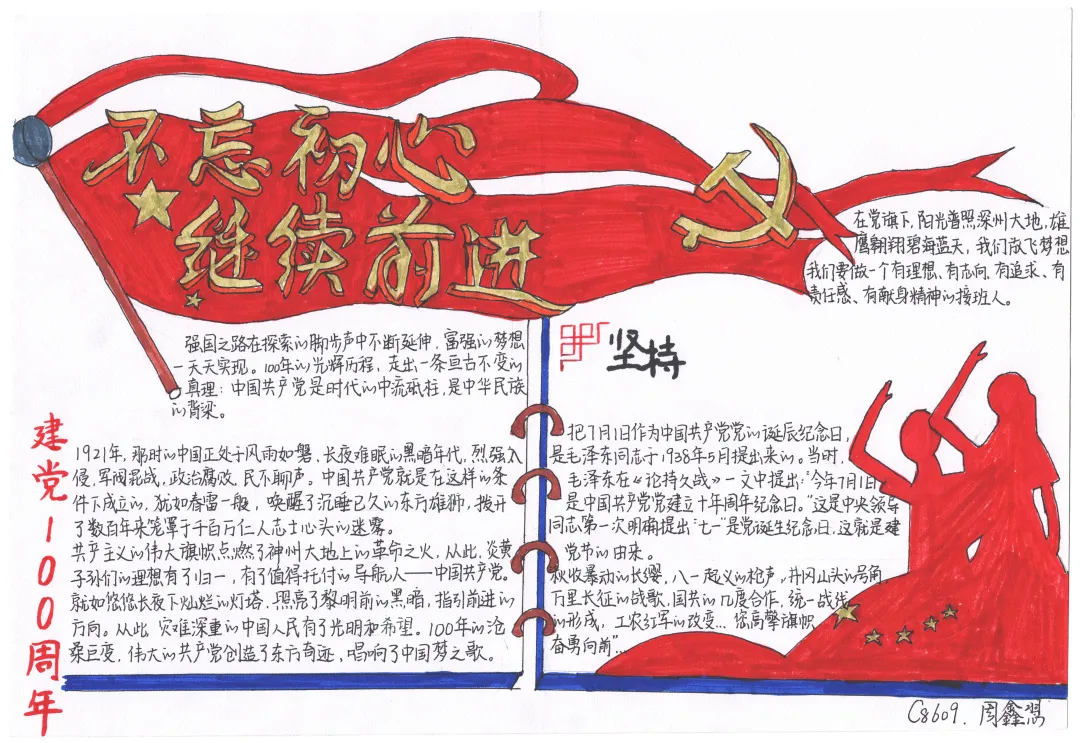 不忘初心
继续前进
在党旗下，阳光普照深州大地，雄
鹰翱翔碧海蓝天，我们放飞梦想
我们要做一个有理想、有志向、有追求、有
责任感、有献身精神的接班人。
强国之路在探索的脚步声中不断延伸，富强的梦想
一天天实现。100年的光辉历程，走出一条亘古不变的
真理：中国共产党是时代的中流砥柱，是中华民族
的脊梁。
建党100周年
1921年，那时的中国正处于风雨如磐、长夜难眠的黑暗年代，烈强入
侵，军阀混战，政治腐败，民不聊声。中国共产党就是在这样的条
件下成立的，犹如春雷一般，唤醒了沉睡已久的东方雄狮，拨开
了数百年来笼罩于千百万仁人志士心头的迷雾。
共产主义的伟大旗帜点燃了神州大地上的革命之火，从此，炎黄
子孙们的理想有了归一，有了值得托付的导航人——中国共产党。
就如悠悠长夜下灿烂的灯塔，照亮了黎明前的黑暗，指引前进的
方向。从此，灾难深重的中国人民有了光明和希望。100年的沧
桑巨变，伟大的共产党创造了东方奇迹，唱响了中国梦之歌。
坚持
把7月1日作为中国共产党党的诞辰纪念日，
是毛泽东同志于1938年5月提出来的。当时，
毛泽东在《论持久战》一文中提出：“今年7月1日
是中国共产党党建立十年周年纪念日。”这是中央领导
同志第一次明确提出“七一”是党诞生纪念日，这就是建
党节的由来。
秋收暴动的长缨，八一起义的枪声，井冈山头的号角
万里长征的战歌，国共的几度合作，统一战线
的形成，工农红军的改变…您高擎旗帜
奋勇向前”…
C8609.周鑫